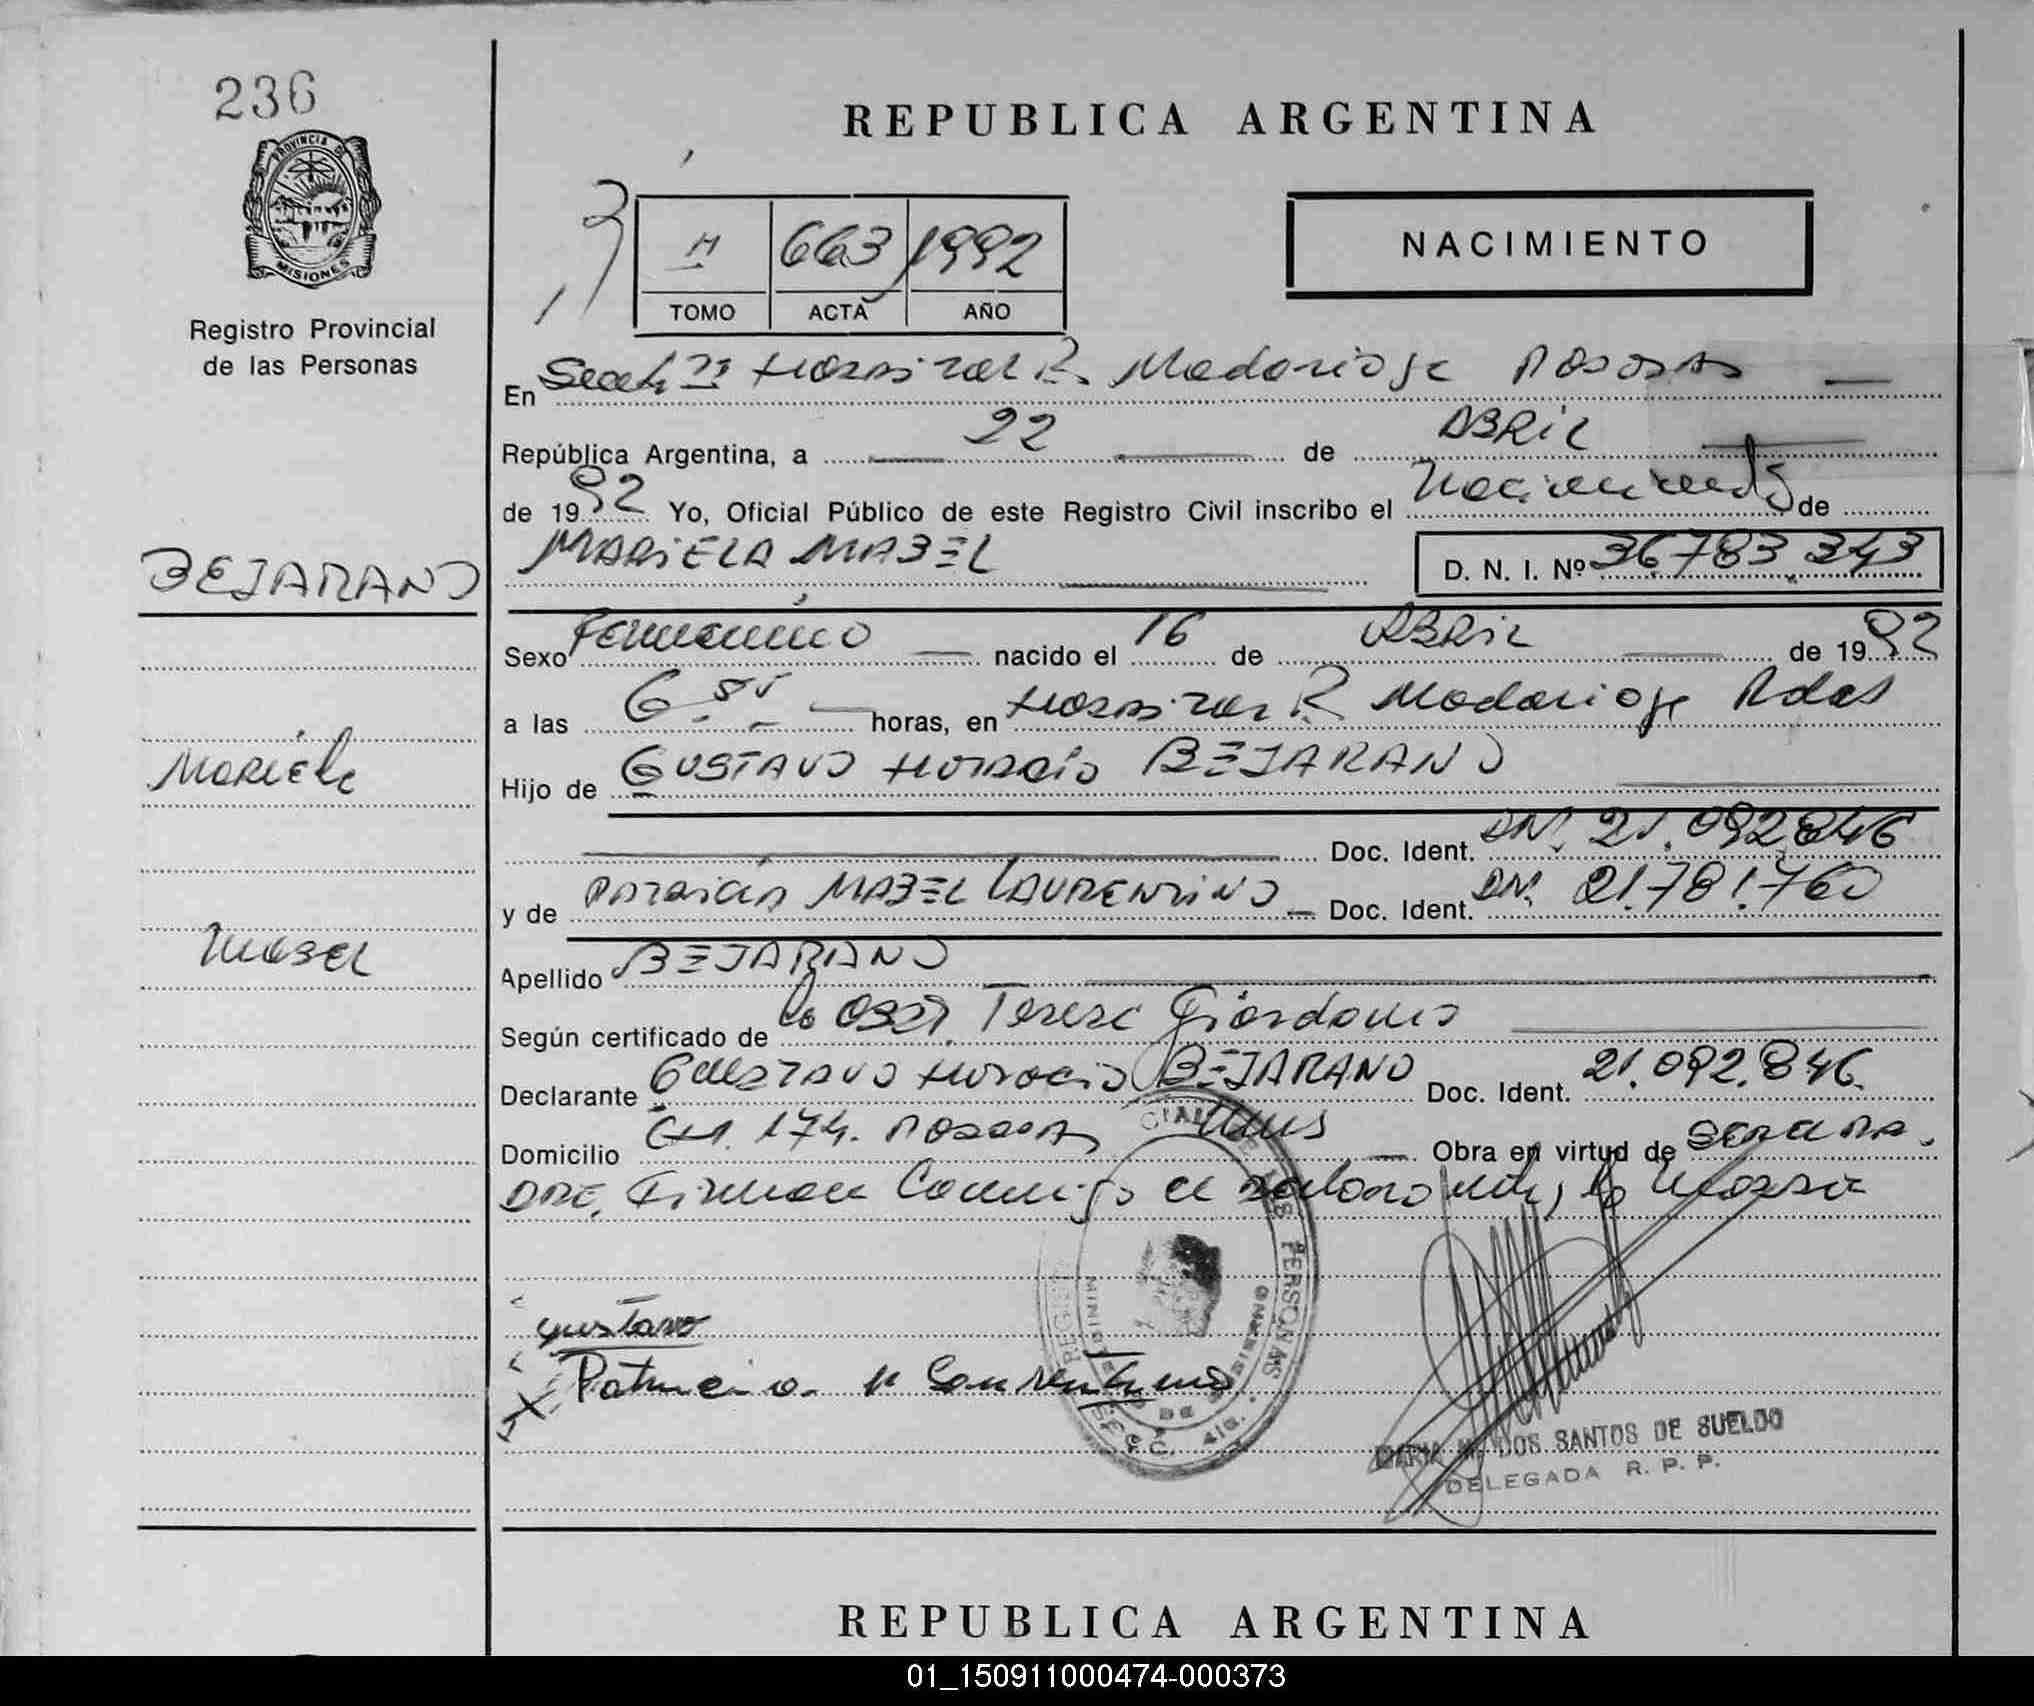 236
PROVINCIA DE
MISIONES
Registro Provincial
de las Personas
REPUBLICA ARGENTINA
II 663 1992
TOMO ACTA AÑO
NACIMIENTO
En Hospital R. Madariaga Posadas
República Argentina, a 22 de ABRIL
de 1992 Yo, Oficial Público de este Registro Civil inscribo el Nacimiento de
BEJARANO
MARIELA MABEL D. N. I. Nº 36.783.343
Sexo Femenino nacido el 16 de ABRIL de 1992
Mariela
a las 6 horas, en Hospital R Madariaga Pdas
Hijo de GUSTAVO Horacio BEJARANO
Doc. Ident. DNI. 21.092846
y de PATRICIA MABEL LAURENTINO Doc. Ident. DNI. 21.781.760
Mabel
Apellido BEJARANO
Según certificado de la Obst. Teresa
Declarante GUSTAVO Horacio BEJARANO Doc. Ident. 21.092.846
Domicilio 174. Posadas Mnes Obra en virtud de
Firman Conmigo el y la
Gustavo
Patricia M Laurentino
DE LAS PERSONAS
MISIONES
DOS SANTOS DE SUELDO
DELEGADA R. P. P.
REPUBLICA ARGENTINA
01_150911000474-000373